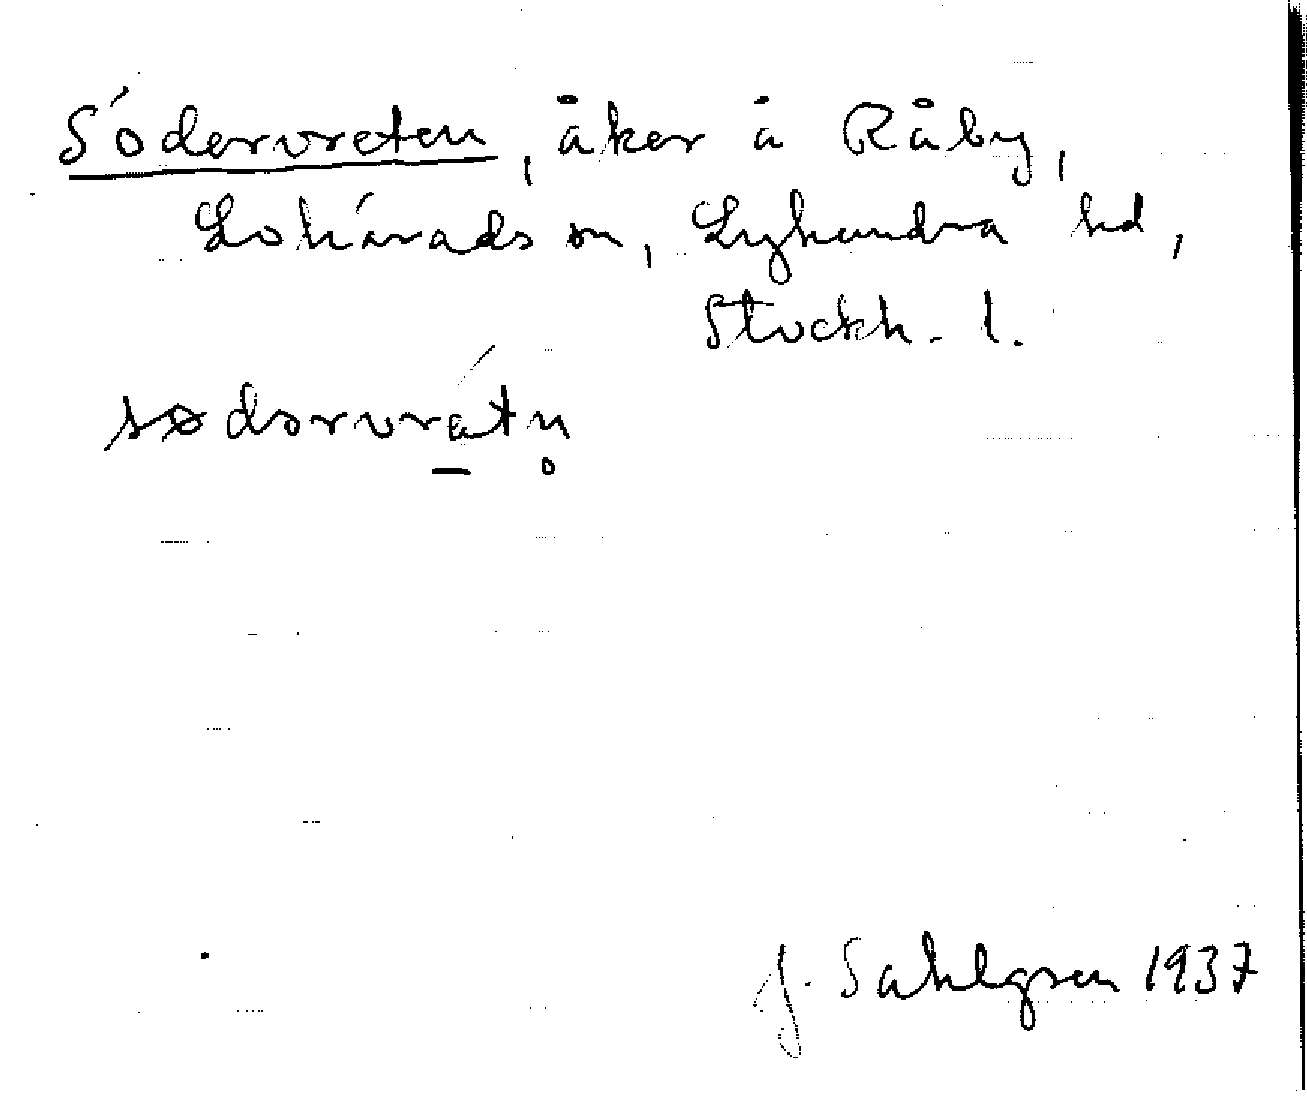 Södervreten, åker å Råby,
Lohärads sn, Lyhundra hd,
Stockh. l.
sødərvrätn̥
J. Sahlgren 1937